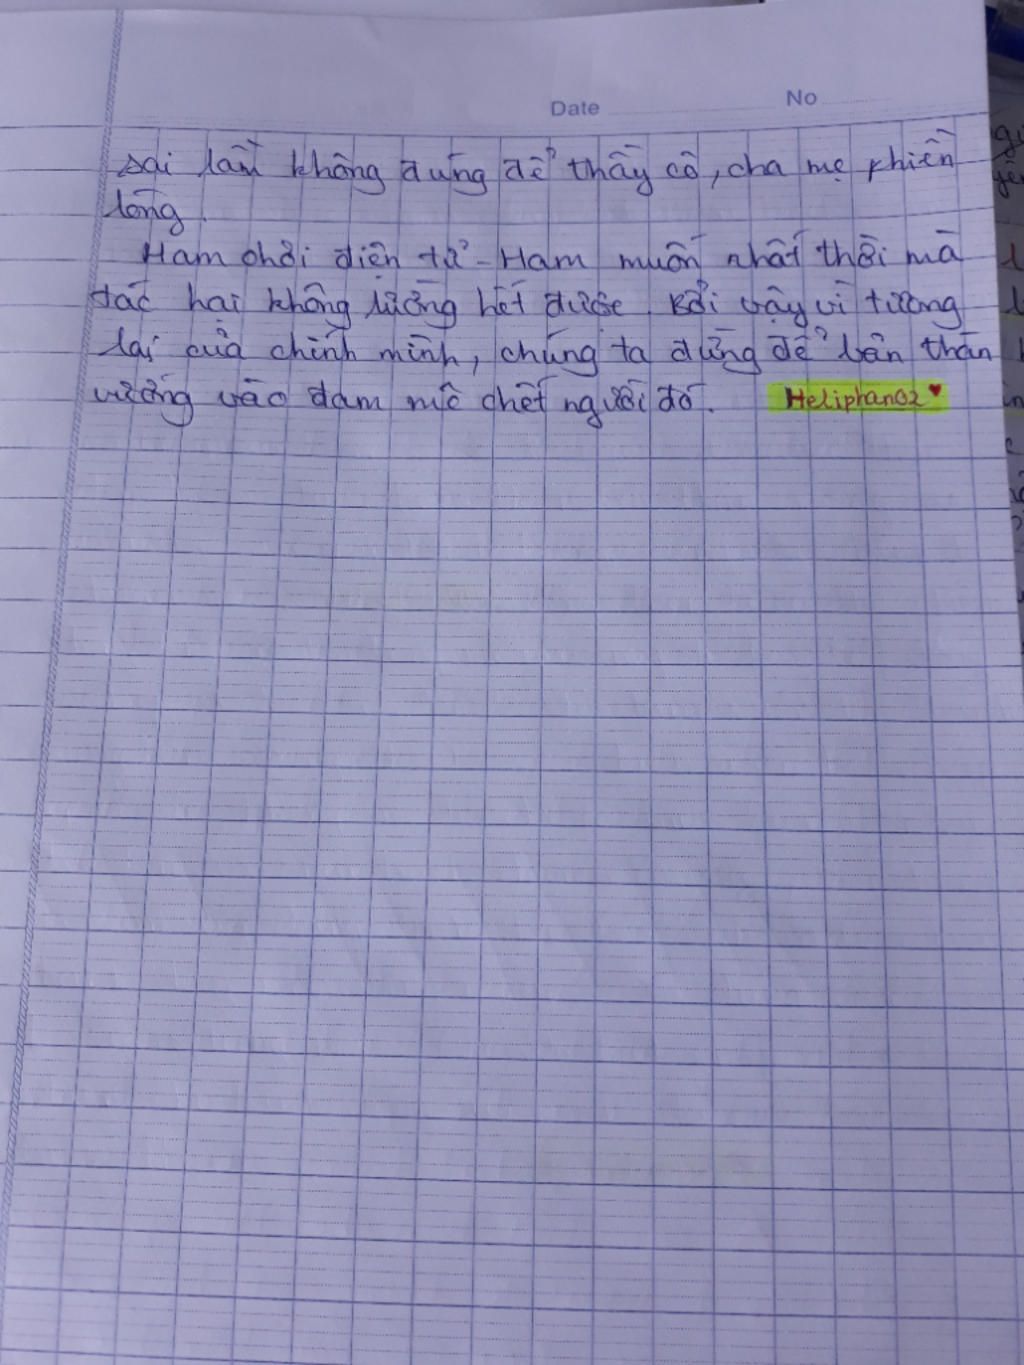 Date No
sai lầm không đứng để thầy cô, cha mẹ phiền
lòng.
Ham chơi điện tử - Ham muốn nhất thời mà
tác hại không lường hết được. Bởi vậy vì tương
lai của chính mình, chúng ta đừng để bản thân
vướng vào đam mê chết người đó. Heliphan02